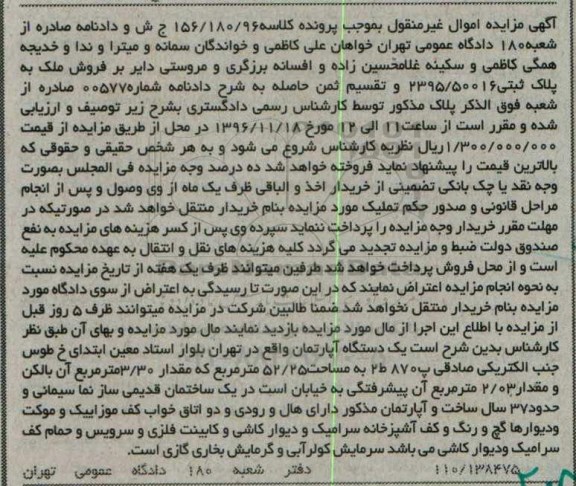 آگهی مزایده اموال غیرمنقول بموجب پرونده کلاسه۱۵۶/۱۸۰/۹۶ ج ش و دادنامه صادره از
شعبه۱۸۰ دادگاه عمومی تهران خواهان علی کاظمی و خواندگان سمانه و میترا و ندا و خدیجه
همگی کاظمی و سکینه غلامحسین زاده و افسانه برزگری و مروستی دایر بر فروش ملک به
پلاک ثبتی۲۳۹۵/۵۰۰۱۶ و تقسیم ثمن حاصله به شرح دادنامه شماره۰۰۵۷۷ صادره از
شعبه فوق الذکر پلاک مذکور توسط کارشناس رسمی دادگستری بشرح زیر توصیف و ارزیابی
شده و مقرر است از ساعت۱۱ الی ۱۲ مورخ ۱۳۹۶/۱۱/۱۸ در محل از طریق مزایده از قیمت
۱/۳۰۰/۰۰۰/۰۰۰ریال نظریه کارشناس شروع می شود و به هر شخص حقیقی و حقوقی که
بالاترین قیمت را پیشنهاد نماید فروخته خواهد شد ده درصد وجه مزایده فی المجلس بصورت
وجه نقد یا چک بانکی تضمینی از خریدار اخذ و الباقی ظرف یک ماه از وی وصول و پس از انجام
مراحل قانونی و صدور حکم تملیک مورد مزایده بنام خریدار منتقل خواهد شد در صورتیکه در
مهلت مقرر خریدار وجه مزایده را پرداخت ننماید سپرده وی پس از کسر هزینه های مزایده به نفع
صندوق دولت ضبط و مزایده تجدید می گردد کلیه هزینه های نقل و انتقال به عهده محکوم علیه
است و از محل فروش پرداخت خواهد شد طرفین میتوانند ظرف یک هفته از تاریخ مزایده نسبت
به نحوه انجام مزایده اعتراض نمایند که در این صورت تا رسیدگی به اعتراض از سوی دادگاه مورد
مزایده بنام خریدار منتقل نخواهد شد ضمنا طالبین شرکت در مزایده میتوانند ظرف ۵ روز قبل
از مزایده با اطلاع این اجرا از مال مورد مزایده بازدید نمایند مال مورد مزایده و بهای آن طبق نظر
کارشناس بدین شرح است یک دستگاه آپارتمان واقع در تهران بلوار استاد معین ابتدای خ طوس
جنب الکتریکی صادقی پ۸۷۰ ط۲ به مساحت۵۲/۲۵ مترمربع که مقدار ۳/۳۰مترمربع آن بالکن
و مقدار۲/۰۳ مترمربع آن پیشرفتگی به خیابان است در یک ساختمان قدیمی ساز نما سیمانی و
حدود۳۷ سال ساخت و آپارتمان مذکور دارای هال و رودی و دو اتاق خواب کف موزاییک و موکت
ودیوارها گچ و رنگ و کف آشپزخانه سرامیک و دیوار کاشی و کابینت فلزی و سرویس و حمام کف
سرامیک ودیوار کاشی می باشد سرمایش کولرآبی و گرمایش بخاری گازی است.
۱۱۰/۱۳۸۴۷۵ دفتر شعبه ۱۸۰ دادگاه عمومی تهران